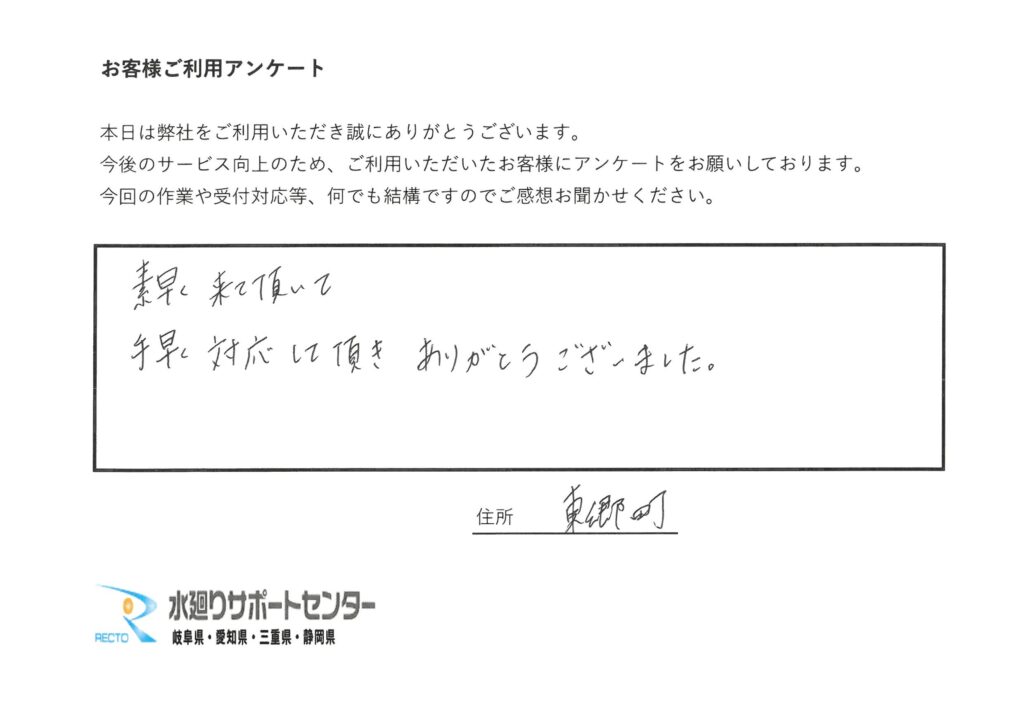 お客様ご利用アンケート
本日は弊社をご利用いただき誠にありがとうございます。
今後のサービス向上のため、ご利用いただいたお客様にアンケートをお願いしております。
今回の作業や受付対応等、何でも結構ですのでご感想お聞かせください。
素早く 来て頂いて
手早く 対応して頂き ありがとうございました。
住所 東郷町
RECTO 水廻りサポートセンター
岐阜県・愛知県・三重県・静岡県